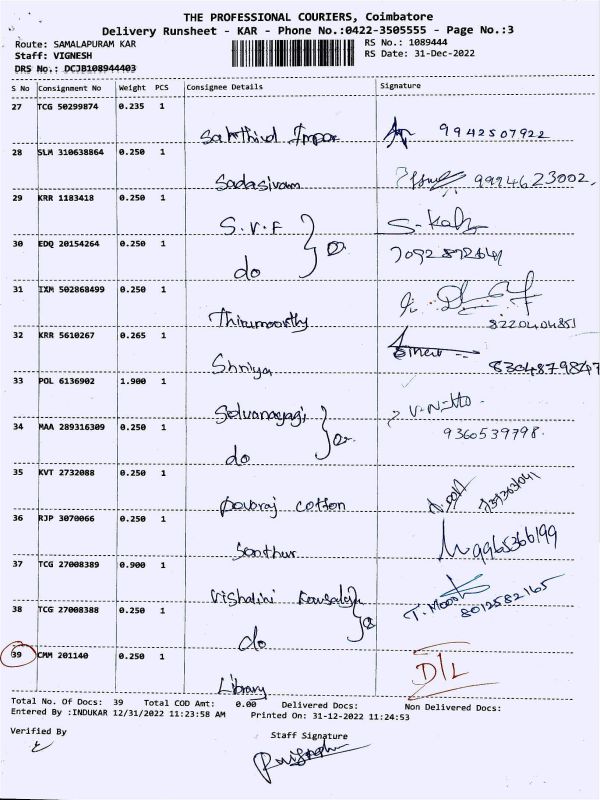 THE PROFESSIONAL COURIERS, Coimbatore
Delivery Runsheet - KAR - Phone No.:0422-3505555 - Page No.:3
Route: SAMALAPURAM KAR RS No.: 1089444
Staff: VIGNESH RS Date: 31-Dec-2022
DRS No.: DCJB108944403
S No Consignment No Weight PCS Consignee Details Signature
27 TCG 50299874 0.235 1
Sakthivel Impex 9942507922
28 SLM 310638864 0.250 1
Sadasivam 9994623002.
29 KRR 1183418 0.250 1
S.V.F S-Kab
30 EDQ 20154264 0.250 1
do 7092872641
31 IXM 502868499 0.250 1
Thirumoorthy 8220404851
32 KRR 5610267 0.265 1
Shriya 8304879847
33 POL 6136902 1.900 1
Selvanayagi
34 MAA 289316309 0.250 1
do 9360539798.
35 KVT 2732088 0.250 1
cotton
36 RJP 3070066 0.250 1
Senthur 9965366199
37 TCG 27008389 0.900 1
Vishalini Kousalya
38 TCG 27008388 0.250 1
do 8012582165
39 CMM 201140 0.250 1
Library D/L
Total No. Of Docs: 39 Total COD Amt: 0.00 Delivered Docs: Non Delivered Docs:
Entered By :INDUKAR 12/31/2022 11:23:58 AM Printed On: 31-12-2022 11:24:53
Verified By Staff Signature